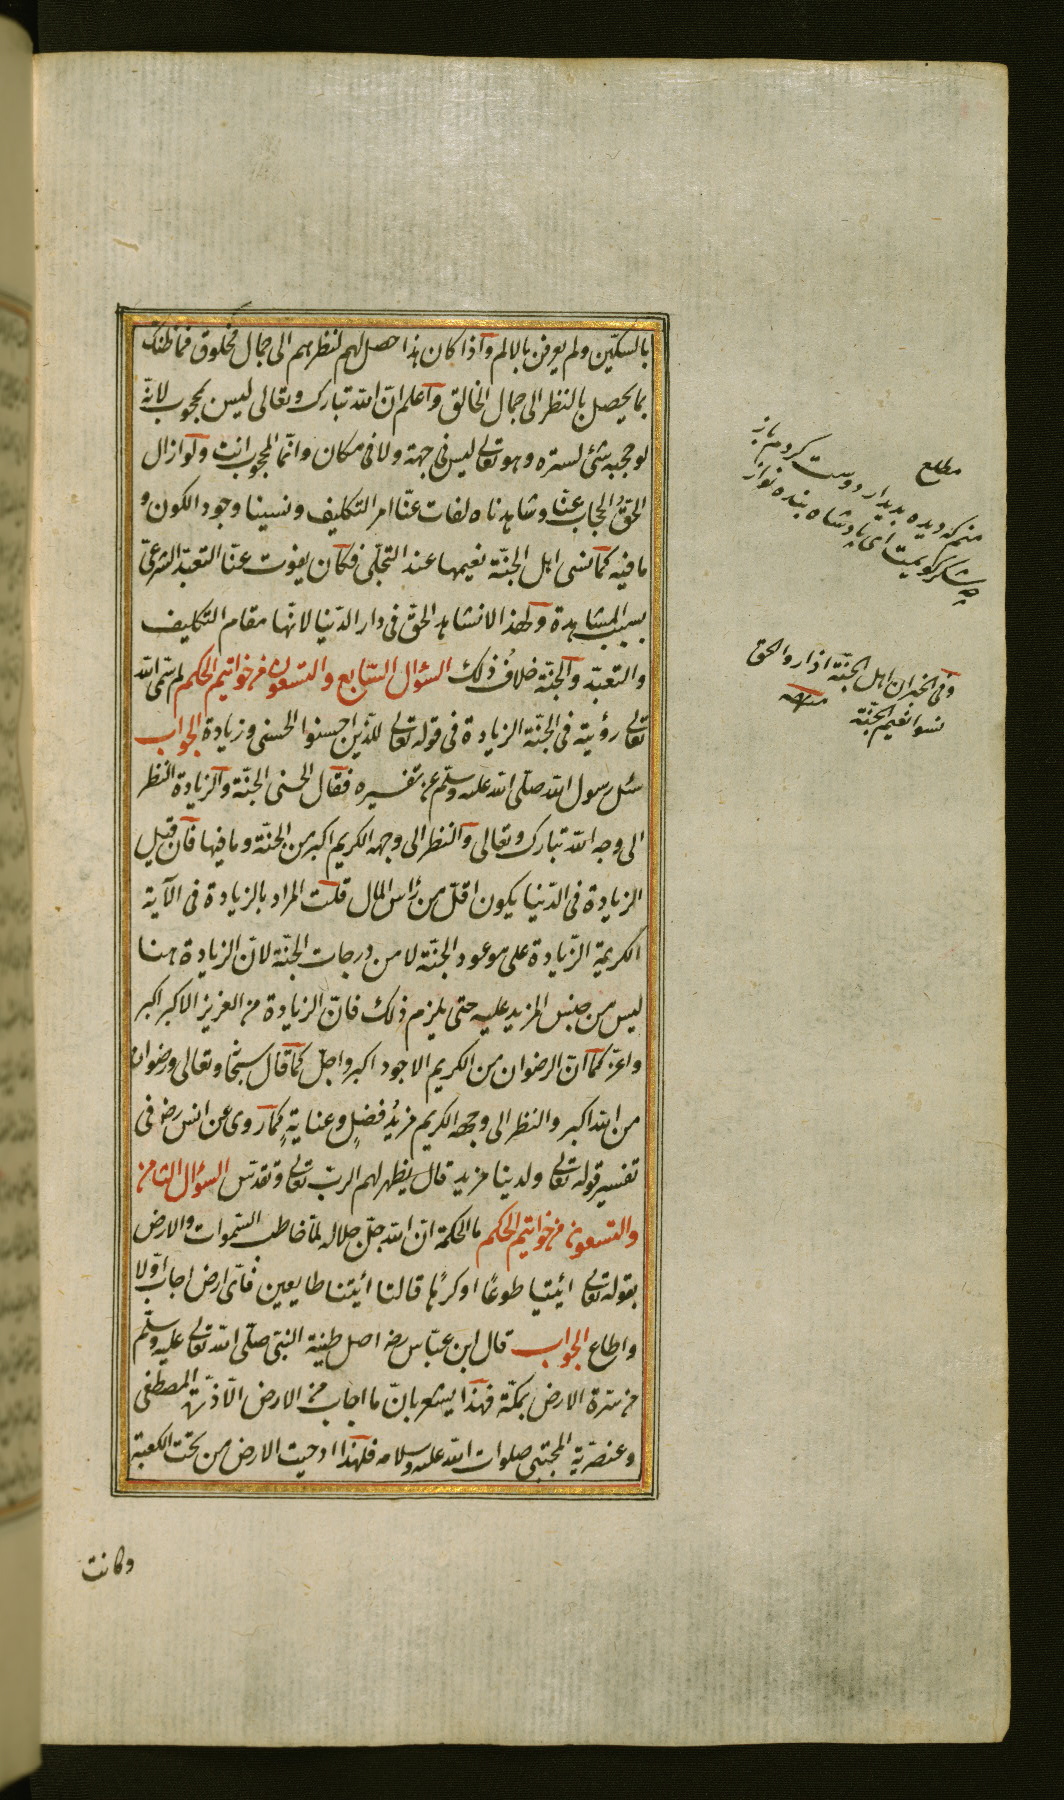 بالسكّين ولم يعرفن بالالم وآذا كان هذا حصل لهم لنظرهم الى جمال مخلوق فما ظنّك
بما يحصل بالنظر الى جمال الخالق وآعلم انّ الله تبارك وتعالى ليس بمحجوب لانّه
لو حجبه شئ لستره وهو تعالى ليس فى جهة ولا فى مكان وانّما المحجوب انت ولو ازال
الحقُّ الحجاب عنّا وشاهدناه لفات عنّا امر التكليف ونسينا وجود الكون و
ما فيه كما نسى اهل الجنّة نعيمها عند التجلّى فكان يفوت عنّا التعبّد الشرعىّ
بسبب المشاهدة ولهذا لا نشاهد الحقّ فى دار الدّنيا لانّها مقام التكليف
والتعبّد والجنّة خلاف ذلك السؤال السّابع والتسعون من خواتيم الحكم لم سمّى الله
تعالى رؤيته فى الجنّة الزيادة فى قوله تعالى للّذين احسنوا الحسنى وزيادة الجواب
سئل رسول الله صلّى الله عليه وسلّم عن تفسيره فقال الحسنى الجنّة والزيادة النظر
الى وجه الله تبارك وتعالى والنظر الى وجهه الكريم اكبر من الجنّة وما فيها فان قيل
الزيادة فى الدّنيا يكون اقلّ من رأس المال قلت المراد بالزيادة فى الآية
الكريمة الزّيادة على موعود الجنّة لا من درجات الجنّة لانّ الزيادة هنا
ليس من جنس المزيد عليه حتى يلزم ذلك فانّ الزيادة من العزيز الاكبر اكبر
واعزّ كما انّ الرضوان من الكريم الاجود اكبر واجلّ كما قال سبحانه وتعالى ورضوان
من الله اكبر والنظر الى وجهه الكريم مزيدُ فضلٍ وعنايةٍ كما روى عن انس رض فى
تفسير قوله تعالى ولدينا مزيد قال يظهر لهم الربّ تعالى وتقدّس السؤال الثامن
والتسعون من خواتيم الحكم ما الحكمة انّ الله جلّ جلاله لمّا خاطب السّموات والارض
بقوله تعالى ائتيا طوعًا او كرهًا قالتا اتينا طايعين فاىّ ارض اجاب اوّلا
واطاع الجواب قال ابن عبّاس رضه اصل طينة النبىّ صلّى الله تعالى عليه وسلّم
من سرّة الارض بمكّة فهذا يشعر بانّ ما اجاب من الارض الّا ذرّة المصطفى
وعنصريّة المجتبى صلوات الله عليه وسلامه فلهذا دحيت الارض من تحت الكعبة
وكانت
مطلع
منم كه ديده بديدار دوست كردم باز
چه شكر گويمت اى پادشاه بنده نواز
وفى الخبر ان اهل الجنّة اذا راوا الحق
نسوا نعيم الجنّة